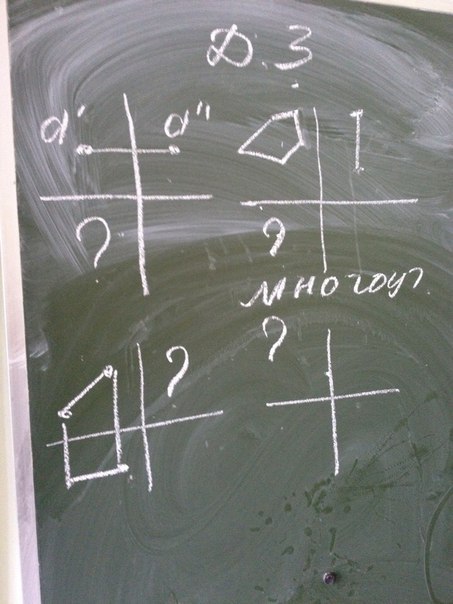 Д.З
а' а"
?
?
многоуг.
?
?